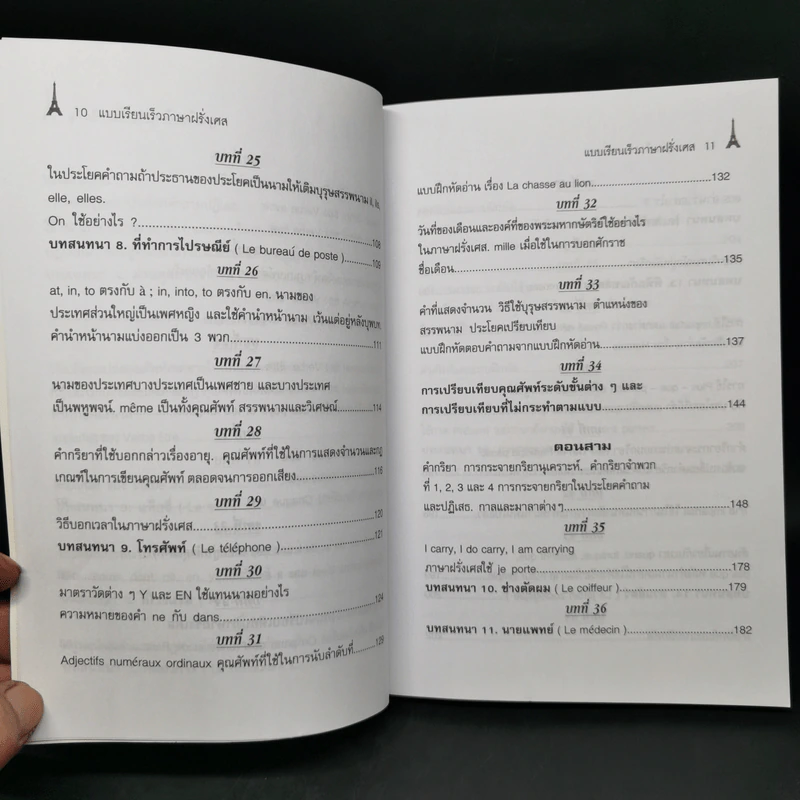 10 แบบเรียนเร็วภาษาฝรั่งเศส
บทที่ 25
ในประโยคคำถามถ้าประธานของประโยคเป็นนามให้เติมบุรุษสรรพนาม il, ils,
elle, elles.
On ใช้อย่างไร ?....................................................108
บทสนทนา 8. ที่ทำการไปรษณีย์ ( Le bureau de poste )..........109
บทที่ 26
at, in, to ตรงกับ à ; in, into, to ตรงกับ en. นามของ
ประเทศส่วนใหญ่เป็นเพศหญิง และใช้คำนำหน้านาม เว้นแต่อยู่หลังบุพบท.
คำนำหน้านามแบ่งออกเป็น 3 พวก...................................111
บทที่ 27
นามของประเทศบางประเทศเป็นเพศชาย และบางประเทศ
เป็นพหูพจน์. même เป็นทั้งคุณศัพท์ สรรพนามและวิเศษณ์..........114
บทที่ 28
คำกริยาที่ใช้บอกกล่าวเรื่องอายุ. คุณศัพท์ที่ใช้ในการแสดงจำนวนและกฎ
เกณฑ์ในการเขียนคุณศัพท์ ตลอดจนการออกเสียง....................116
บทที่ 29
วิธีบอกเวลาในภาษาฝรั่งเศส..........................................120
บทสนทนา 9. โทรศัพท์ ( Le téléphone )..........................121
บทที่ 30
มาตราวัดต่าง ๆ Y และ EN ใช้แทนนามอย่างไร
ความหมายของคำ ne กับ dans.......................................124
บทที่ 31
Adjectifs numéraux ordinaux คุณศัพท์ที่ใช้ในการนับลำดับที่..........129
แบบเรียนเร็วภาษาฝรั่งเศส 11
แบบฝึกหัดอ่าน เรื่อง La chasse au lion..............................132
บทที่ 32
วันที่ของเดือนและองค์ที่ของพระมหากษัตริย์ใช้อย่างไร
ในภาษาฝรั่งเศส. mille เมื่อใช้ในการบอกศักราช
ชื่อเดือน................................................................135
บทที่ 33
คำที่แสดงจำนวน วิธีใช้บุรุษสรรพนาม ตำแหน่งของ
สรรพนาม ประโยคเปรียบเทียบ
แบบฝึกหัดตอบคำถามจากแบบฝึกหัดอ่าน............................137
บทที่ 34
การเปรียบเทียบคุณศัพท์ระดับชั้นต่าง ๆ และ
การเปรียบเทียบที่ไม่กระทำตามแบบ.................................144
ตอนสาม
คำกริยา การกระจายกริยานุเคราะห์. คำกริยาจำพวก
ที่ 1, 2, 3 และ 4 การกระจายกริยาในประโยคคำถาม
และปฏิเสธ. กาลและมาลาต่างๆ......................................148
บทที่ 35
I carry, I do carry, I am carrying
ภาษาฝรั่งเศสใช้ je porte.............................................178
บทสนทนา 10. ช่างตัดผม ( Le coiffeur )..........................179
บทที่ 36
บทสนทนา 11. นายแพทย์ ( Le médecin )..........................182